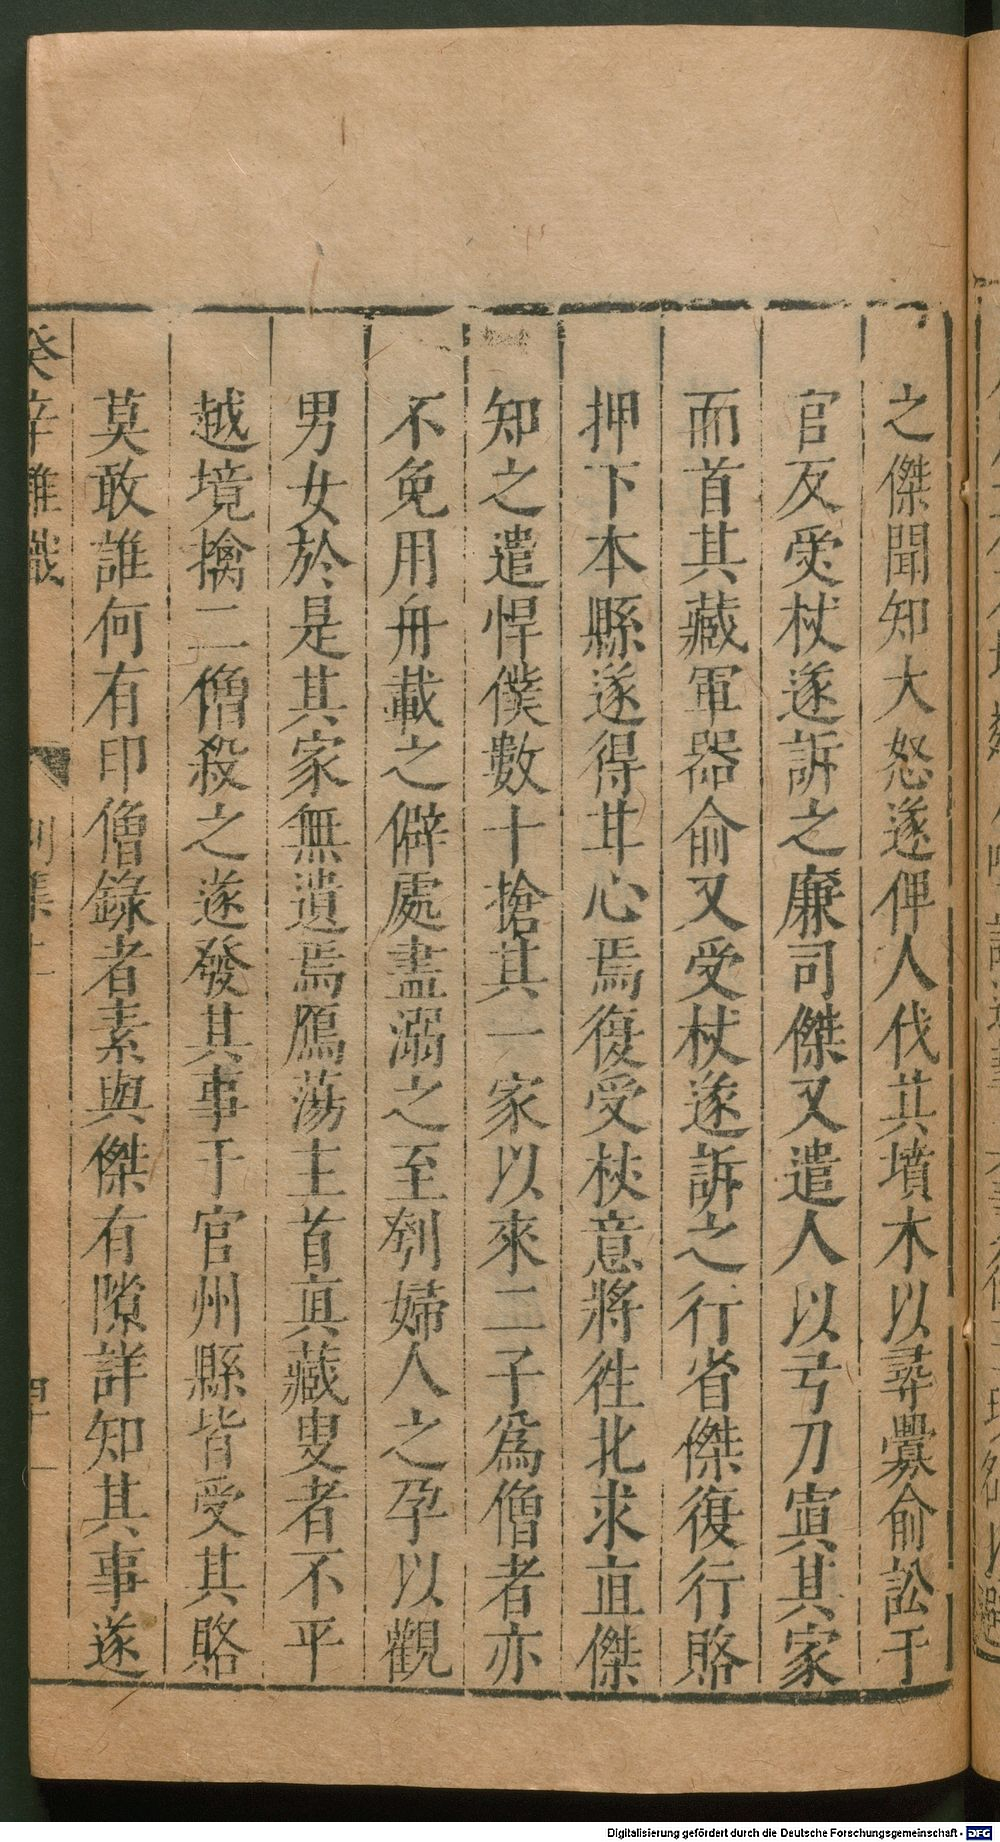 之傑聞知大怒遂俾人伐其墳木以尋釁俞訟于
官反受杖遂訴之廉司傑又遣人以弓刀寘其家
而首其藏軍器俞又受杖遂訴之行省傑復行賂
押下本縣遂得甘心焉復受杖意將徃北求直傑
知之遣悍僕數十搶其一家以來二子爲僧者亦
不免用舟載之僻處盡溺之至刳婦人之孕以觀
男女於是其家無遺焉鴈蕩主首眞藏叟者不平
越境擒二僧殺之遂發其事于官州縣皆受其賂
莫敢誰何有印僧錄者素與傑有隙詳知其事遂
癸辛雜識 別集上
Digitalisierung gefördert durch die Deutsche Forschungsgemeinschaft - DFG